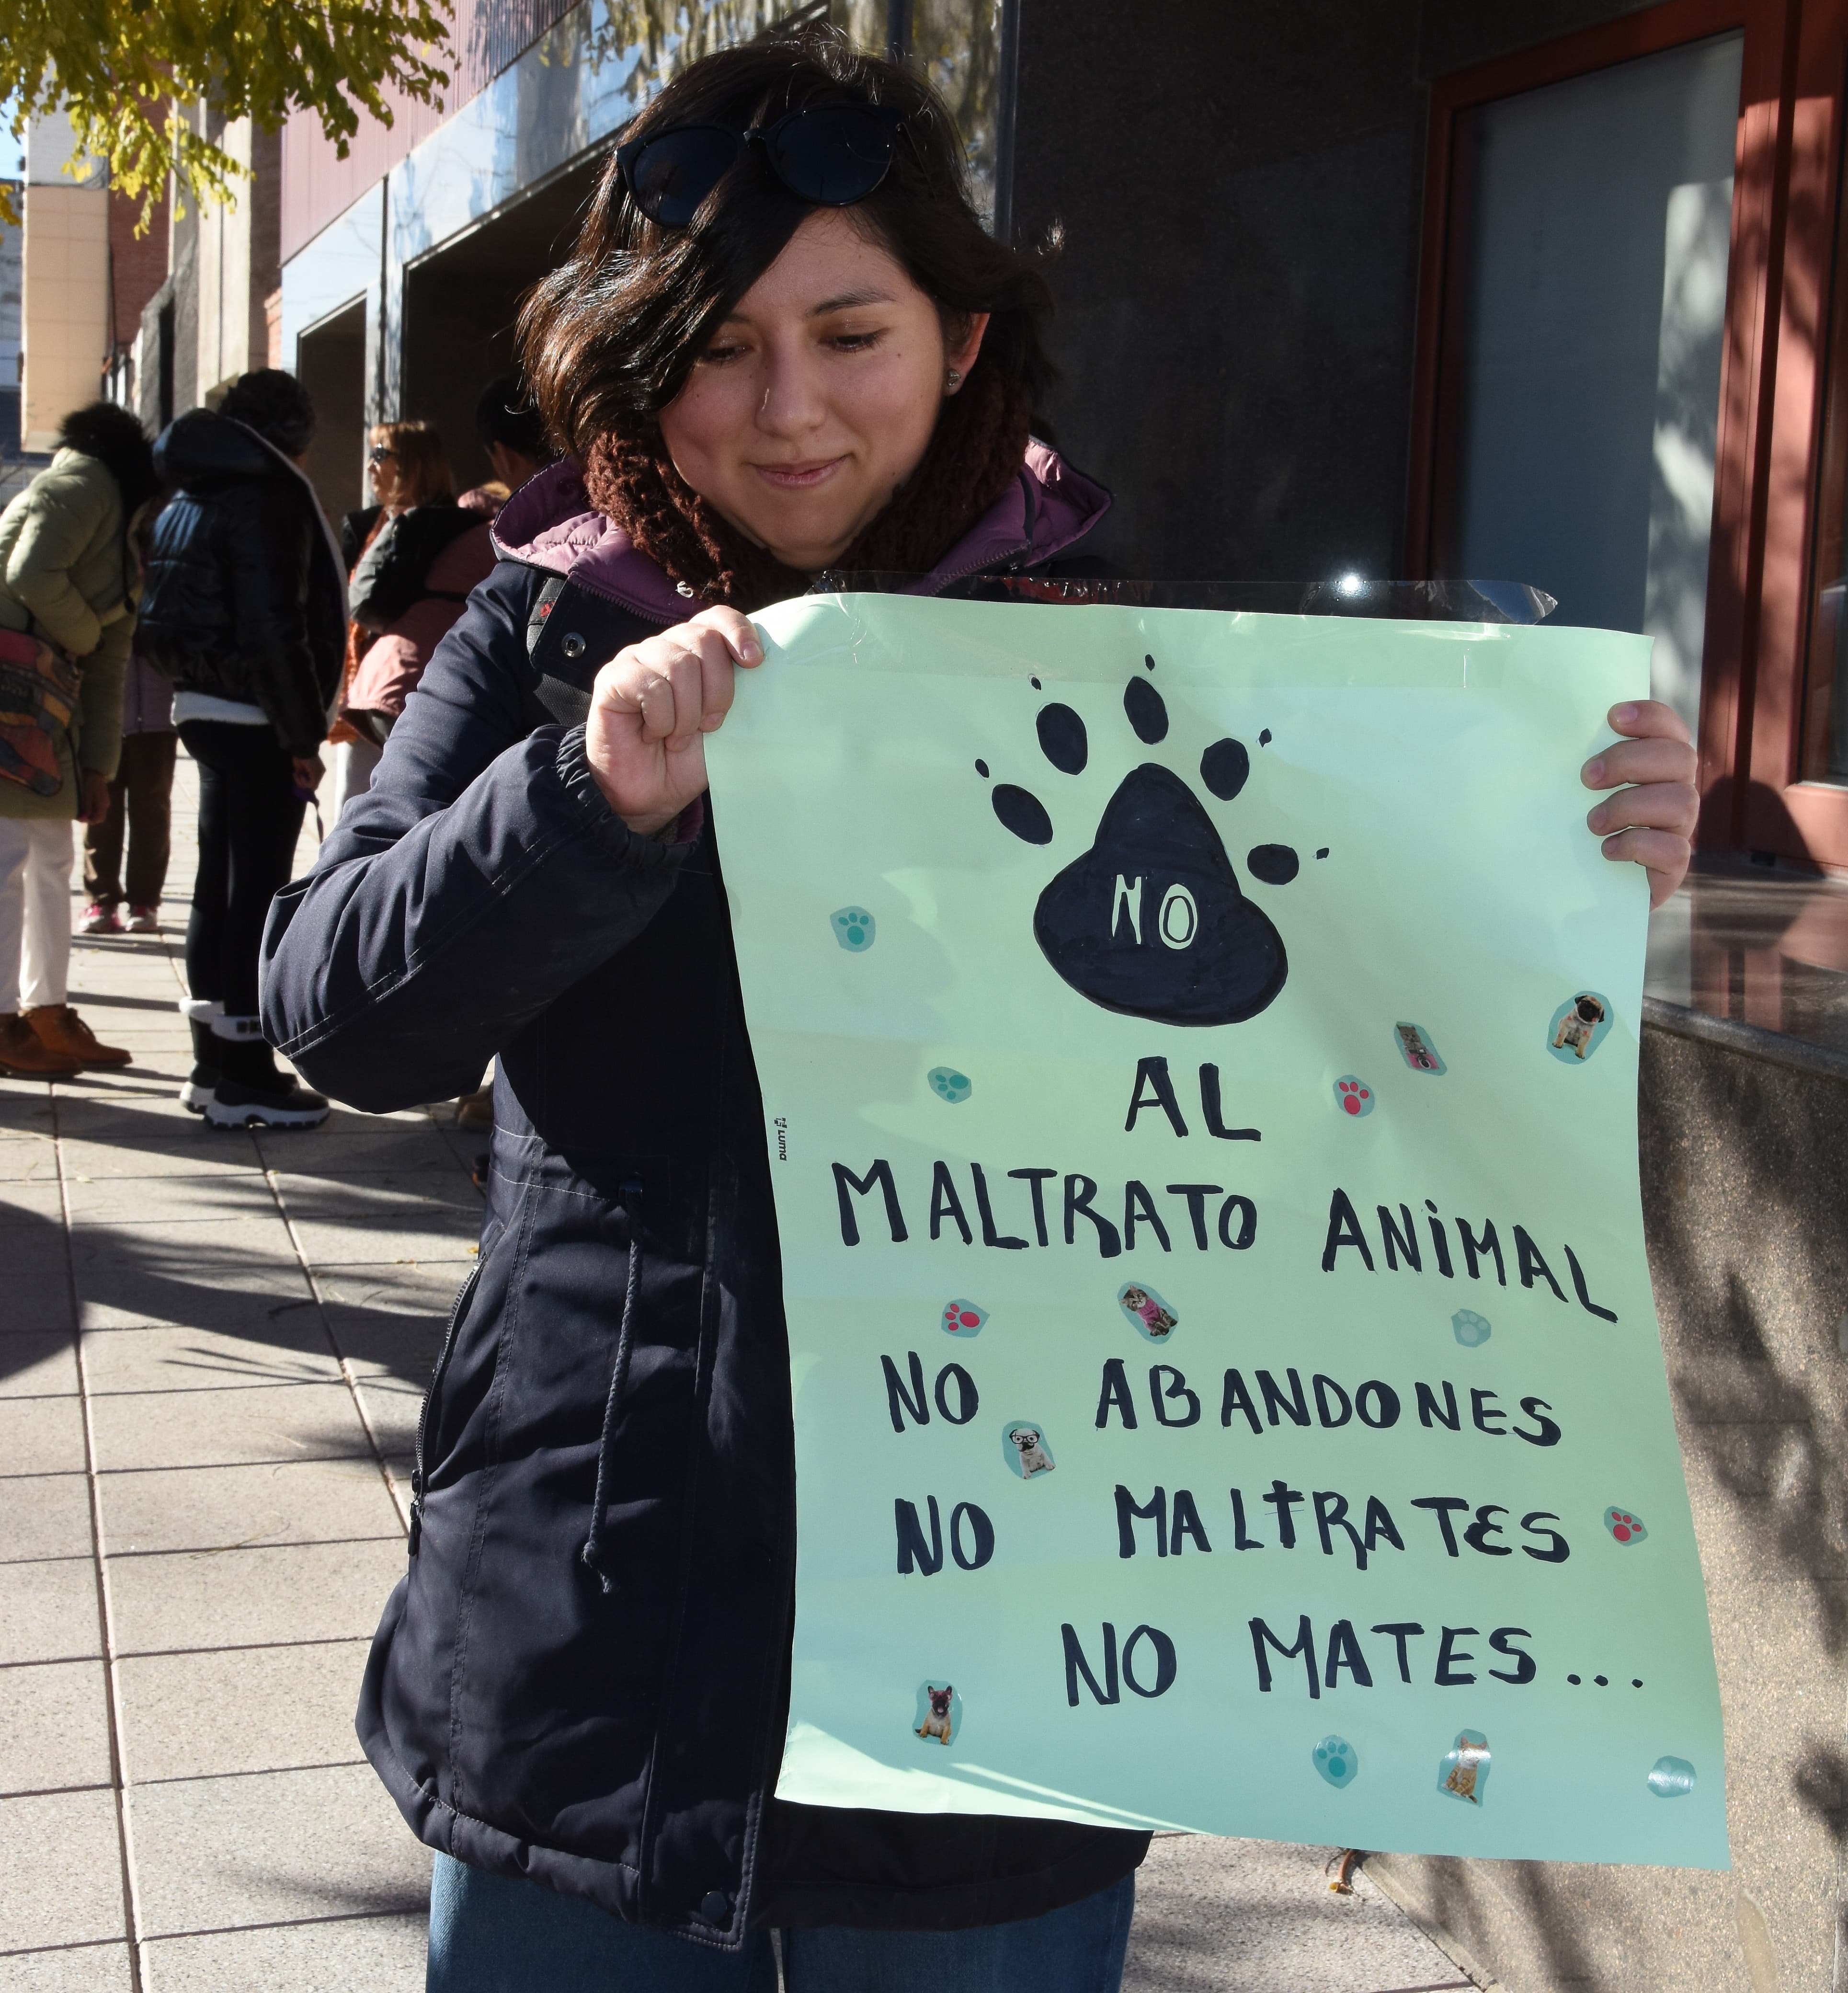 NO
AL
MALTRATO ANiMAL
NO ABANDONES
NO MALTRATES
NO MATES...
luma